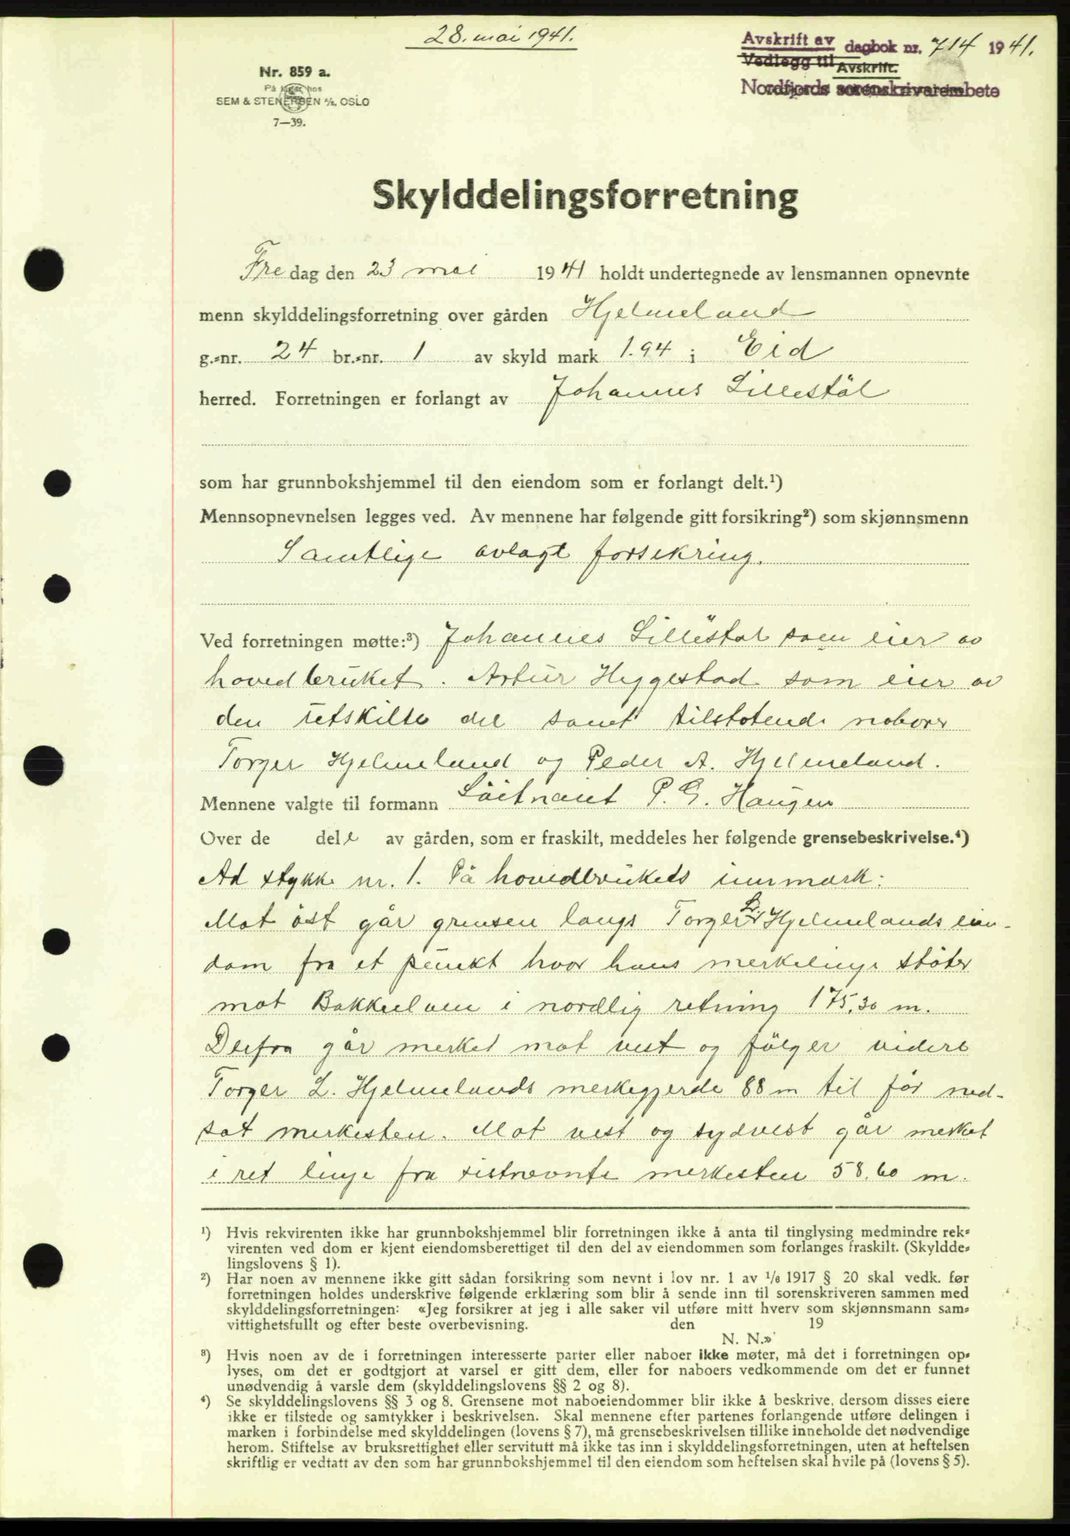 28. mai 1941.
Avskrift av dagbok nr. 714 1941.
Vedlegg til Avskrift.
Nordfjords sorenskrivarembete
Nr. 859 a.
På lager hos
SEM & STENERSEN A/S, OSLO
7—39.
Skylddelingsforretning
Fredag den 23 mai 1941 holdt undertegnede av lensmannen opnevnte
menn skylddelingsforretning over gården Hjelmeland
g.-nr. 24 br.-nr. 1 av skyld mark 1.94 i Eid
herred. Forretningen er forlangt av Johannes Lillestøl
som har grunnbokshjemmel til den eiendom som er forlangt delt.¹)
Mennsopnevnelsen legges ved. Av mennene har følgende gitt forsikring²) som skjønnsmenn
Samtlige avlagt forsikring.
Ved forretningen møtte:³) Johannes Lillestøl som eier av
hovedbruket. Artur Heggestad som eier av
den utskilte del samt tilstøtende naboer
Torger Hjelmeland og Peder A. Hjelmeland.
Mennene valgte til formann Löitnant P. G. Haugen
Over de dele av gården, som er fraskilt, meddeles her følgende grensebeskrivelse.⁴)
Ad stykke nr. 1. På hovedbrukets innmark:
Mot öst går grensen langs Torger L. Hjelmelands eien-
dom fra et punkt hvor hans merkelinje stöter
mot Bakkeelven i nordlig retning 175,30 m.
Derfra går merket mot vest og fölger videre
Torger L. Hjelmelands merkegjerde 88 m til før ned-
sat merkesten. Mot vest og sydvest går merket
i ret linje fra sistnevnte merkesten 58,60 m.
¹) Hvis rekvirenten ikke har grunnbokshjemmel blir forretningen ikke å anta til tinglysing medmindre rek-
virenten ved dom er kjent eiendomsberettiget til den del av eiendommen som forlanges fraskilt. (Skyldde-
lingslovens § 1).
²) Har noen av mennene ikke gitt sådan forsikring som nevnt i lov nr. 1 av ¹/₆ 1917 § 20 skal vedk. før
forretningen holdes underskrive følgende erklæring som blir å sende inn til sorenskriveren sammen med
skylddelingsforretningen: «Jeg forsikrer at jeg i alle saker vil utføre mitt hverv som skjønnsmann sam-
vittighetsfullt og efter beste overbevisning. den 19
N. N.»
³) Hvis noen av de i forretningen interesserte parter eller naboer ikke møter, må det i forretningen op-
lyses, om det er godtgjort at varsel er gitt dem, eller for naboers vedkommende om det er funnet
unødvendig å varsle dem (skylddelingslovens §§ 2 og 8).
⁴) Se skylddelingslovens §§ 3 og 8. Grensene mot naboeiendommer blir ikke å beskrive, dersom disses eiere
ikke er tilstede og samtykker i beskrivelsen. Skal mennene efter partenes forlangende utføre delingen i
marken i forbindelse med skylddelingen (lovens § 7), må grensebeskrivelsen tillike inneholde det nødvendige
herom. Stiftelse av bruksrettighet eller servitutt må ikke tas inn i skylddelingsforretningen, uten at heftelsen
skriftlig er vedtatt av den som har grunnbokshjemmel til den eiendom som heftelsen skal hvile på (lovens § 5).